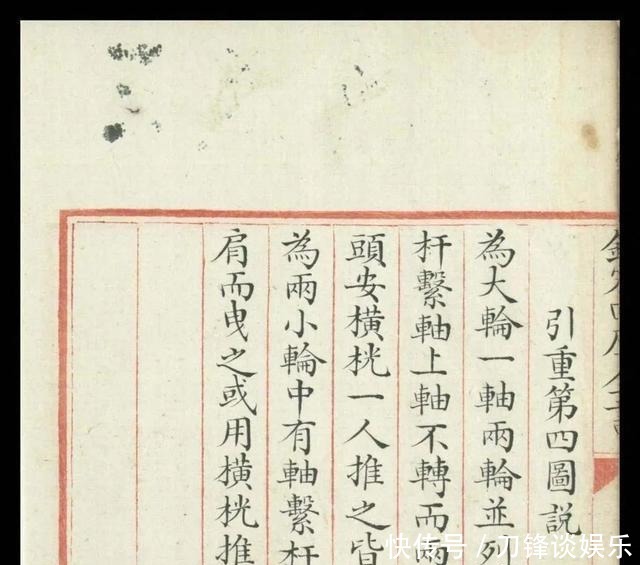 引重第四圖説
為大輪一軸兩輪並列
杆繫軸上軸不轉而兩
頭安橫桄一人推之皆
為兩小輪中有軸繫杆
肩而曳之或用橫桄推
快传号 / 刃锋谈娱乐